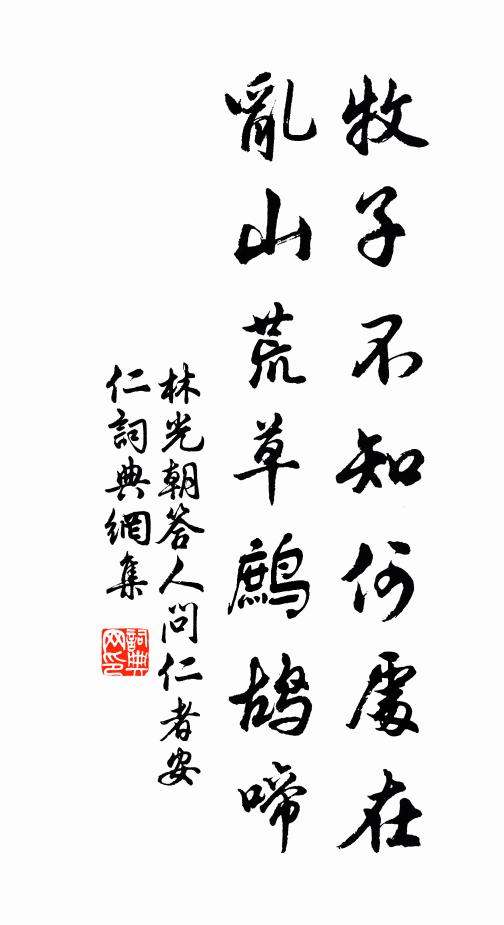 牧子不知何處在
亂山荒草鷓鴣啼
林光朝答人問仁者安
仁詞典網集
詞典
网印